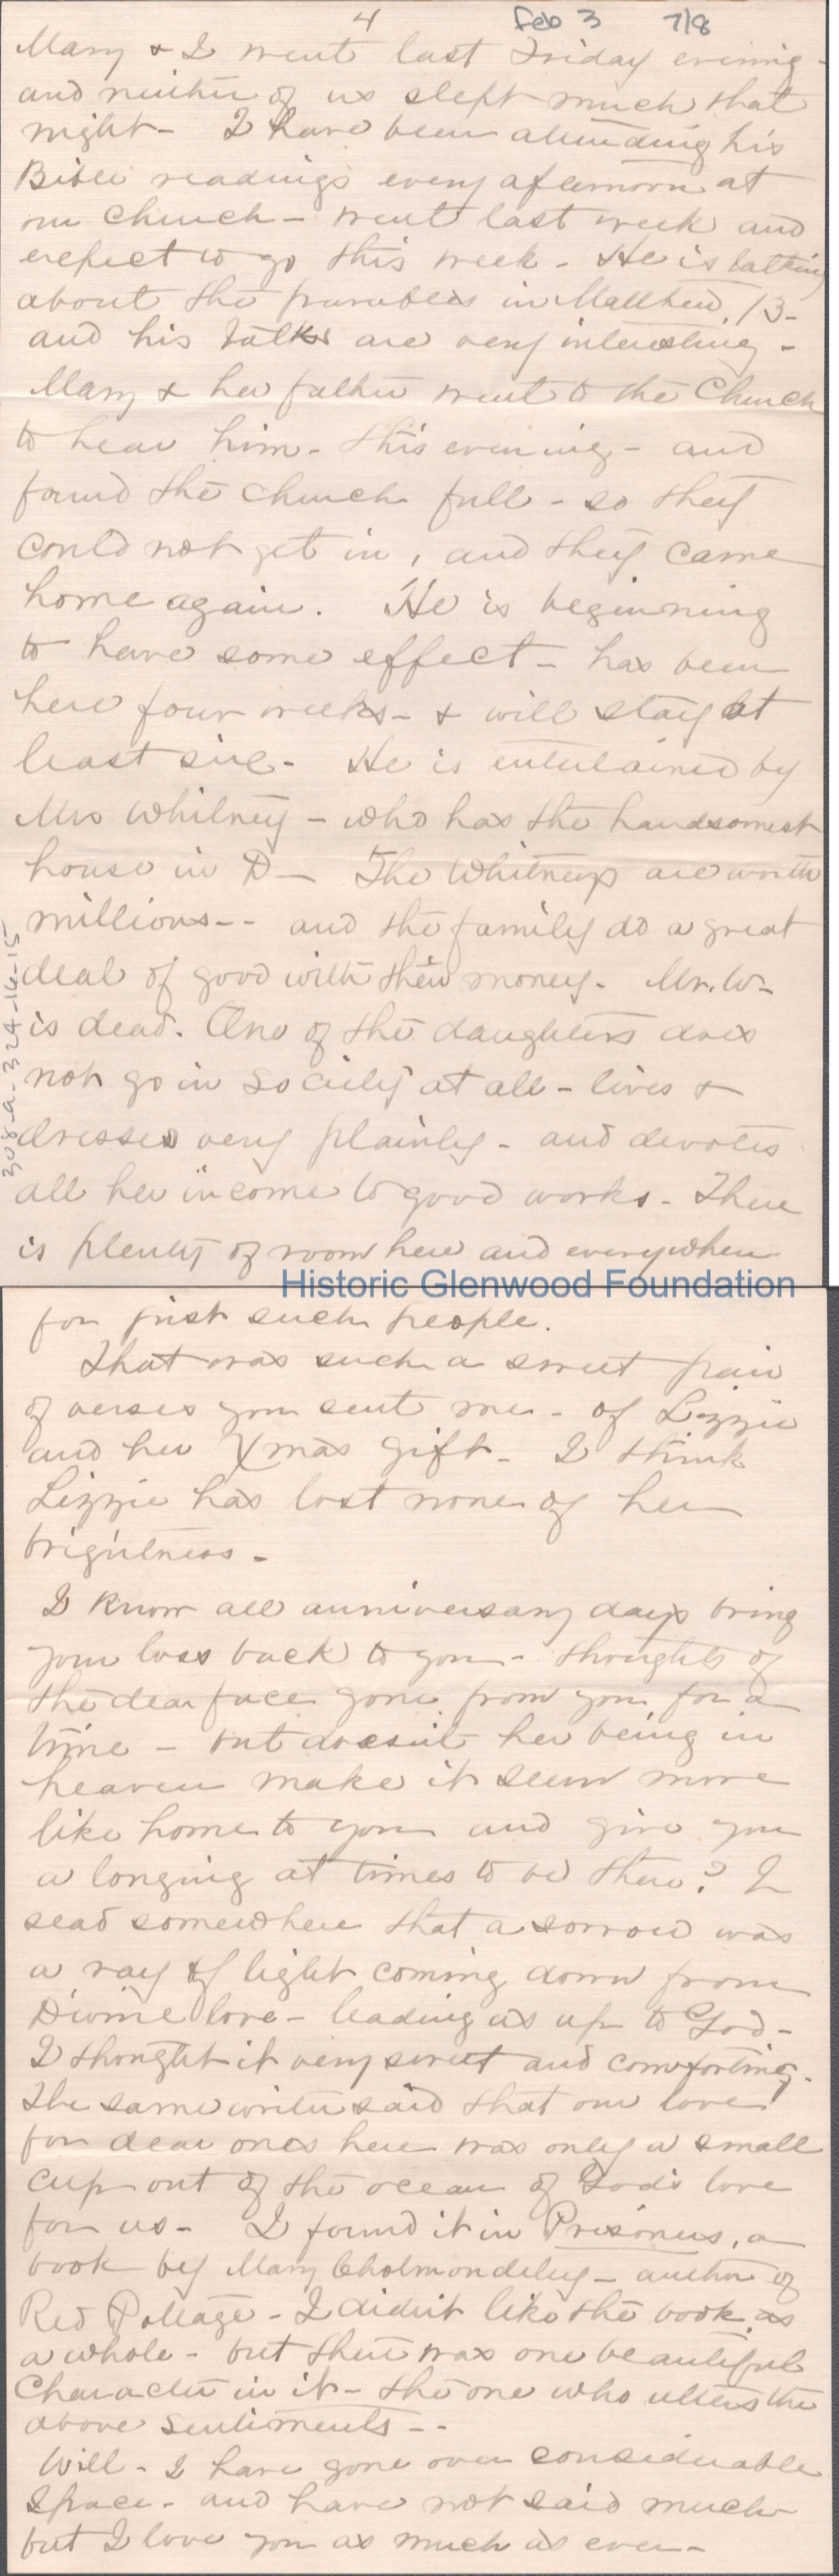 4 Feb 3 7/8
Mary & I went last Friday evening -
and neither of us slept much that
night - I have been attending his
Bible readings every afternoon at
our church - went last week and
expect to go this week - He is talking
about the parables in Matthew, 13 -
and his talks are very interesting -
Mary & her father went to the Church
to hear him - this evening - and
found the church full - so they
could not get in, and they came
home again. He is beginning
to have some effect - has been
here four weeks - & will stay at
least six - He is entertained by
Mrs Whitney - who has the handsomest
house in D - The Whitneys are worth
millions -- and the family do a great
deal of good with their money - Mr. W -
is dead. One of the daughters does
not go in society at all - lives &
dresses very plainly - and devotes
all her income to good works - There
is plenty of room here and everywhere
308-a-324-16-15
Historic Glenwood Foundation
for just such people.
That was such a sweet pair
of verses you sent me - of Lizzie
and her Xmas gift - I think
Lizzie has lost none of her
brightness -
I know all anniversary days bring
your loss back to you - thoughts of
the dear face gone from you for a
time - but doesn't her being in
heaven make it seem more
like home to you and give you
a longing at times to be there? I
read somewhere that a sorrow was
a ray of light coming down from
Divine love - leading us up to God -
I thought it very sweet and comforting.
The same writer said that our love
for dear ones here was only a small
cup out of the ocean of God's love
for us - I found it in Prisoners, a
book by Mary Cholmondeley - author of
Red Pottage - I didn't like the book as
a whole - but there was one beautiful
Character in it - the one who utters the
above sentiments --
Well - I have gone over considerable
space - and have not said much
but I love you as much as ever -